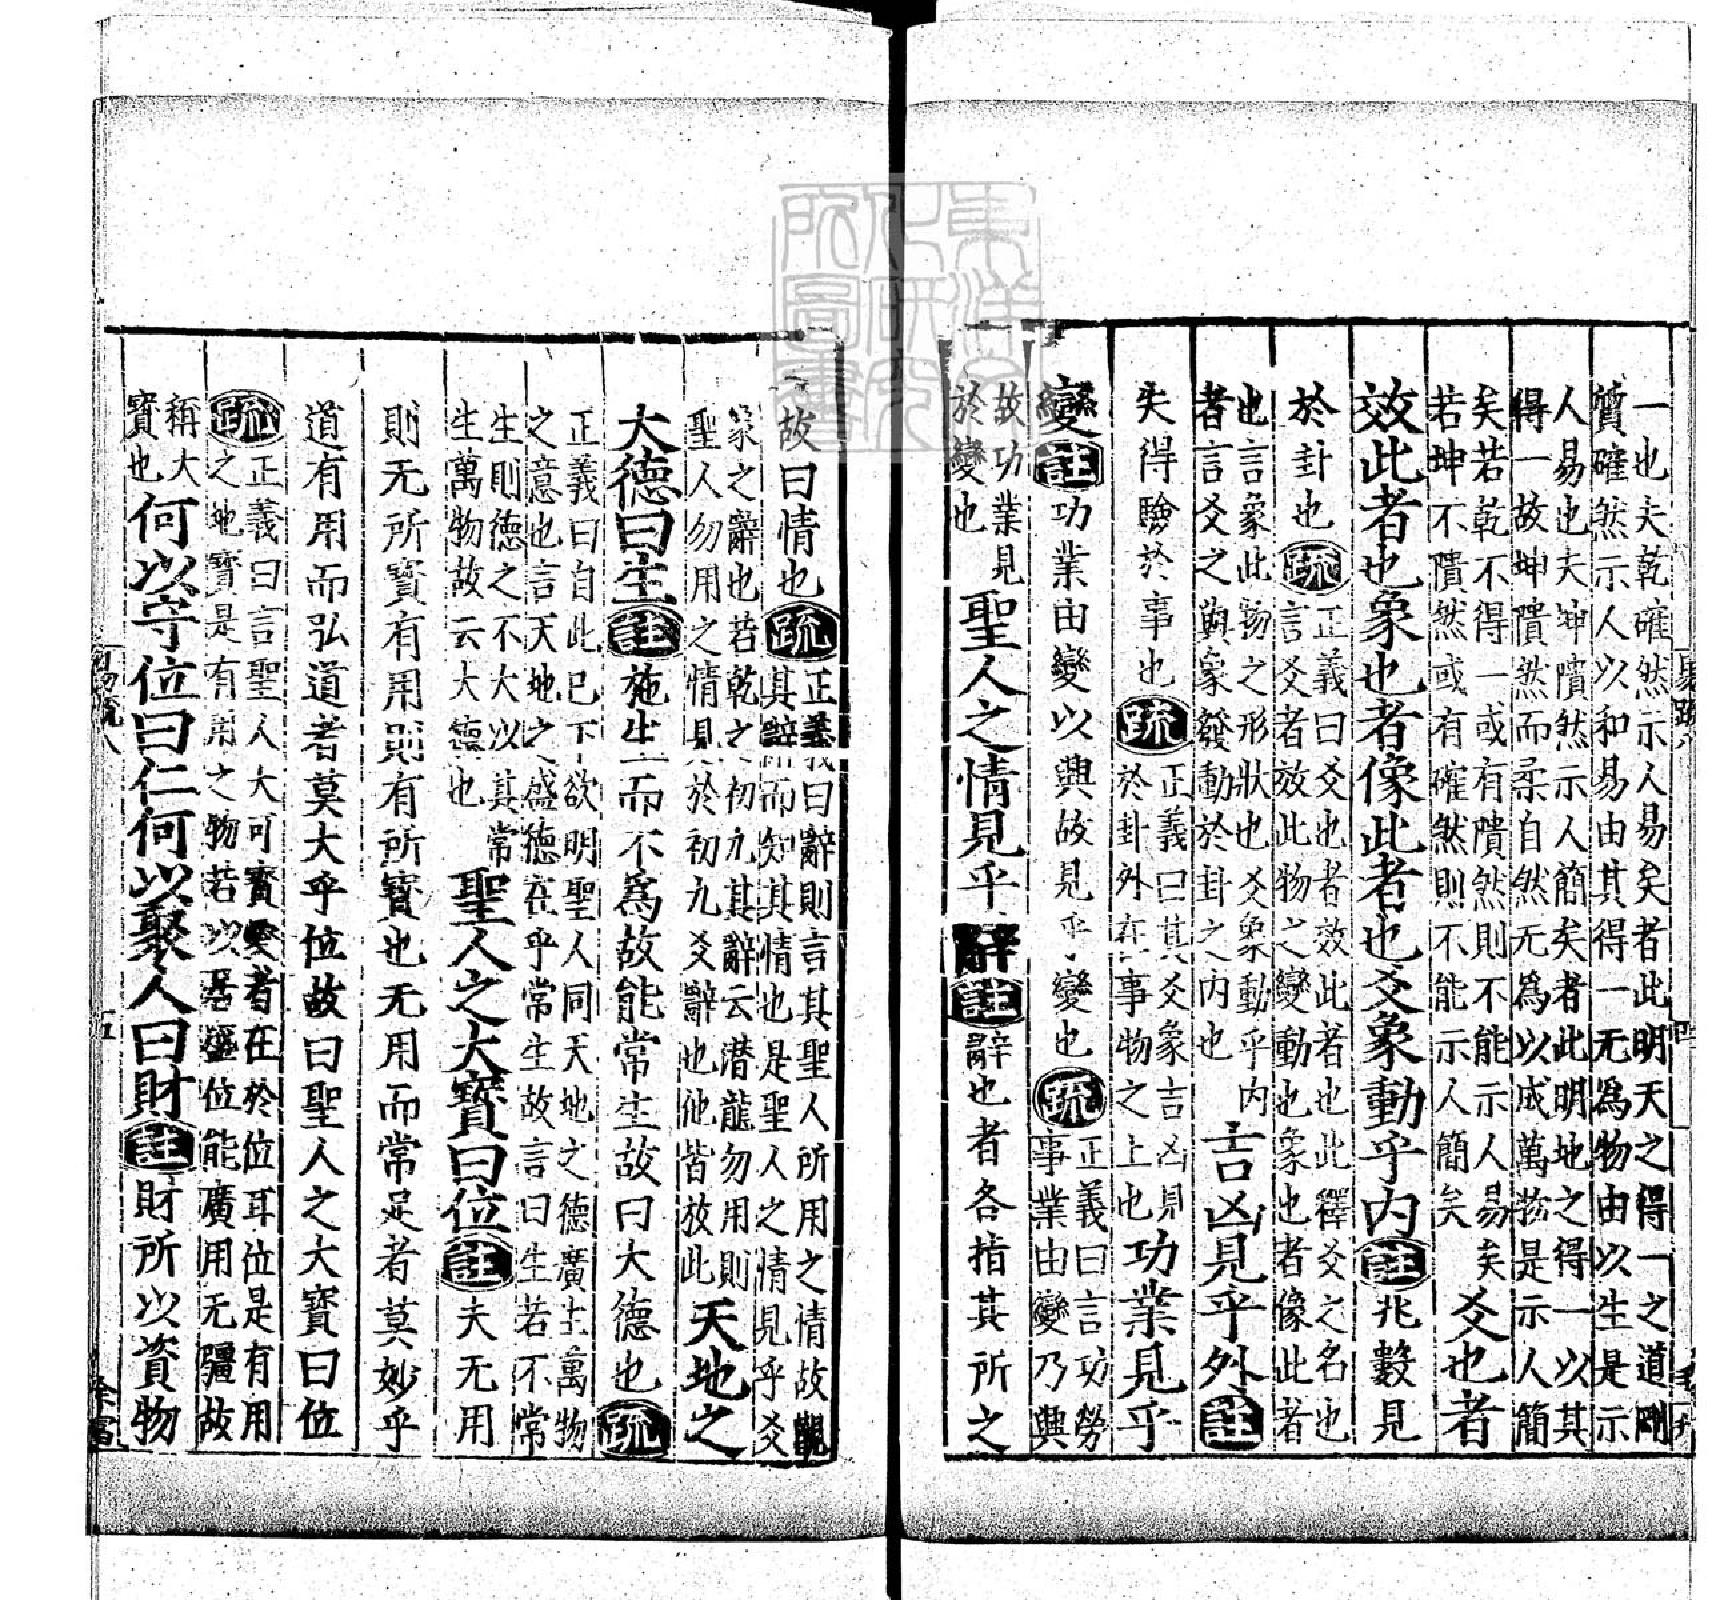 一也夫乾確然示人易矣者此明天之得一之道剛
質確然示人以和易由其得一无為物由以生是示
人易也夫坤隤然示人簡矣者此明地之得一以其
得一故坤隤然而柔自然无為以成萬物是示人簡
矣若乾不得一或有隤然則不能示人易矣
若坤不隤然或有確然則不能示人簡矣
爻也者
效此者也象也者像此者也爻象動乎內註兆數見
於卦也疏
正義曰爻也者效此者也此釋爻之名也
言爻者效此物之變動也象也者像此者
也言象此物之形狀也爻象動乎內
者言爻之與象發動於卦之內也
吉凶見乎外註
失得驗於事也疏
正義曰其爻象吉凶見
於卦外在事物之上也
功業見乎
變註功業由變以興故見乎變也疏
正義曰言功勞
事業由變乃興
故功業見
於變也
聖人之情見乎辭註辭也者各指其所之
故曰情也疏
正義曰辭則言其聖人所用之情故觀
其辭而知其情也是聖人之情見乎爻
象之辭也若乾之初九其辭云潜龍勿用則
聖人勿用之情見於初九爻辭也他皆放此
天地之
大德曰生註施生而不為故能常生故曰大德也疏
正義曰自此已下欲明聖人同天地之德廣生萬物
之意也言天地之盛德在乎常生故言曰生若不常
生則德之不大以其常
生萬物故云大德也
聖人之大寶曰位註夫无用
則无所寶有用則有所寶也无用而常足者莫妙乎
道有用而弘道者莫大乎位故曰聖人之大寶曰位
疏
正義曰言聖人大可寶愛者在於位耳位是有用
之地寶是有用之物若以居盛位能廣用无疆故
稱大
寶也
何以守位曰仁何以聚人曰財註財所以資物